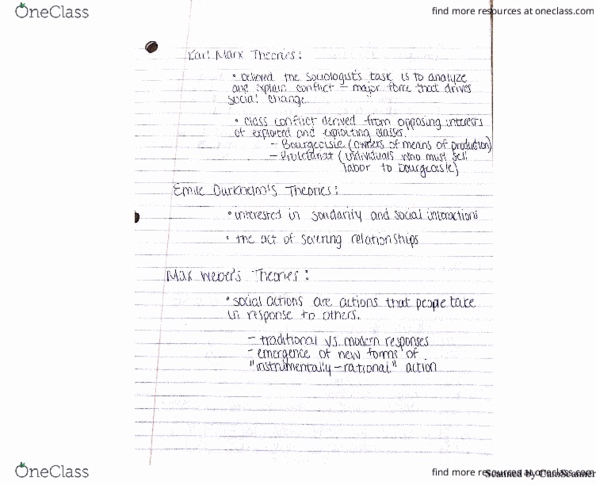 OneClass
find more resources at oneclass.com
Karl Marx Theories:
• believed the sociologist's task is to analyze
and explain conflict – major force that drives
social change.
• class conflict derived from opposing interests
of exploited and exploiting classes.
– Bourgeoisie (owners of means of production)
– Proletariat (individuals who must sell
labor to bourgeoisie)
Emile Durkheim's Theories:
• interested in solidarity and social interactions
• the act of severing relationships
Max Weber's Theories:
• social actions are actions that people take
in response to others.
– traditional vs. modern responses
– emergence of new forms of
"instrumentally-rational" action
OneClass
find more resources at oneclass.com
Scanned by CamScanner